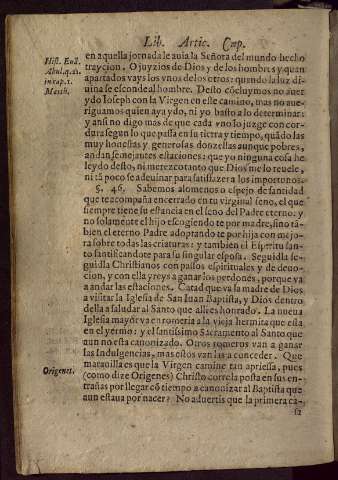 Lib. Artic. Cap.
en aquella jornada le auia la Señora del mundo hecho
Hist. Eccl.
Abul. q. 21.
in cap. 1.
Matth.
traycion. O juyzios de Dios y de los hombres y quan
apartados vays los vnos de los otros: quando la luz di-
uina se esconde al hombre. Desto cõcluymos no auer
ydo Ioseph con la Virgen en este camino, mas no aue-
riguamos quien aya ydo, ni yo basto a lo determinar:
y ansi no digo mas de que cada vno lo juzge con cor-
dura segun lo que passa en su tierra y tiempo, quãdo las
muy honestas y generosas donzellas aunque pobres,
andan semejantes estaciones: que yo ninguna cosa he
leydo desto, ni merezco tanto que Dios me lo reuele,
ni tã poco se adeuinar para satisfazer a los importunos.
§. 46. Sabemos alomenos o espejo de santidad
que te acompaña encerrado en tu virginal seno, el que
siempre tiene su estancia en el seno del Padre eterno: y
no solamente el hijo escogiendo te por madre, sino tã-
bien el eterno Padre adoptando te por hija con mejo-
ra sobre todas las criaturas: y tambien el Espiritu san-
to santificandote para su singular esposa. Seguidla se-
guidla Christianos con passos espirituales y de deuo-
cion, y con ella yreys a ganar los perdones, porque va
a andar las estaciones. Catad que va la madre de Dios
a visitar la Iglesia de San Iuan Baptista, y Dios dentro
della a saludar al Santo que alli es honrado. La nueua
Iglesia mayor va en romeria a la vieja hermita que esta
en el yermo: y el santissimo Sacramento al Santo que
aun no esta canonizado. Otros romeros van a ganar
las Indulgencias, mas estos van las a conceder. Que
marauilla es que la Virgen camine tan apriessa, pues
Origenes.
(como dize Origenes) Christo corre la posta en sus en-
trañas por llegar cõ tiempo a canonizar al Baptista que
aun estaua por nacer? No aduertis que la primera ca-